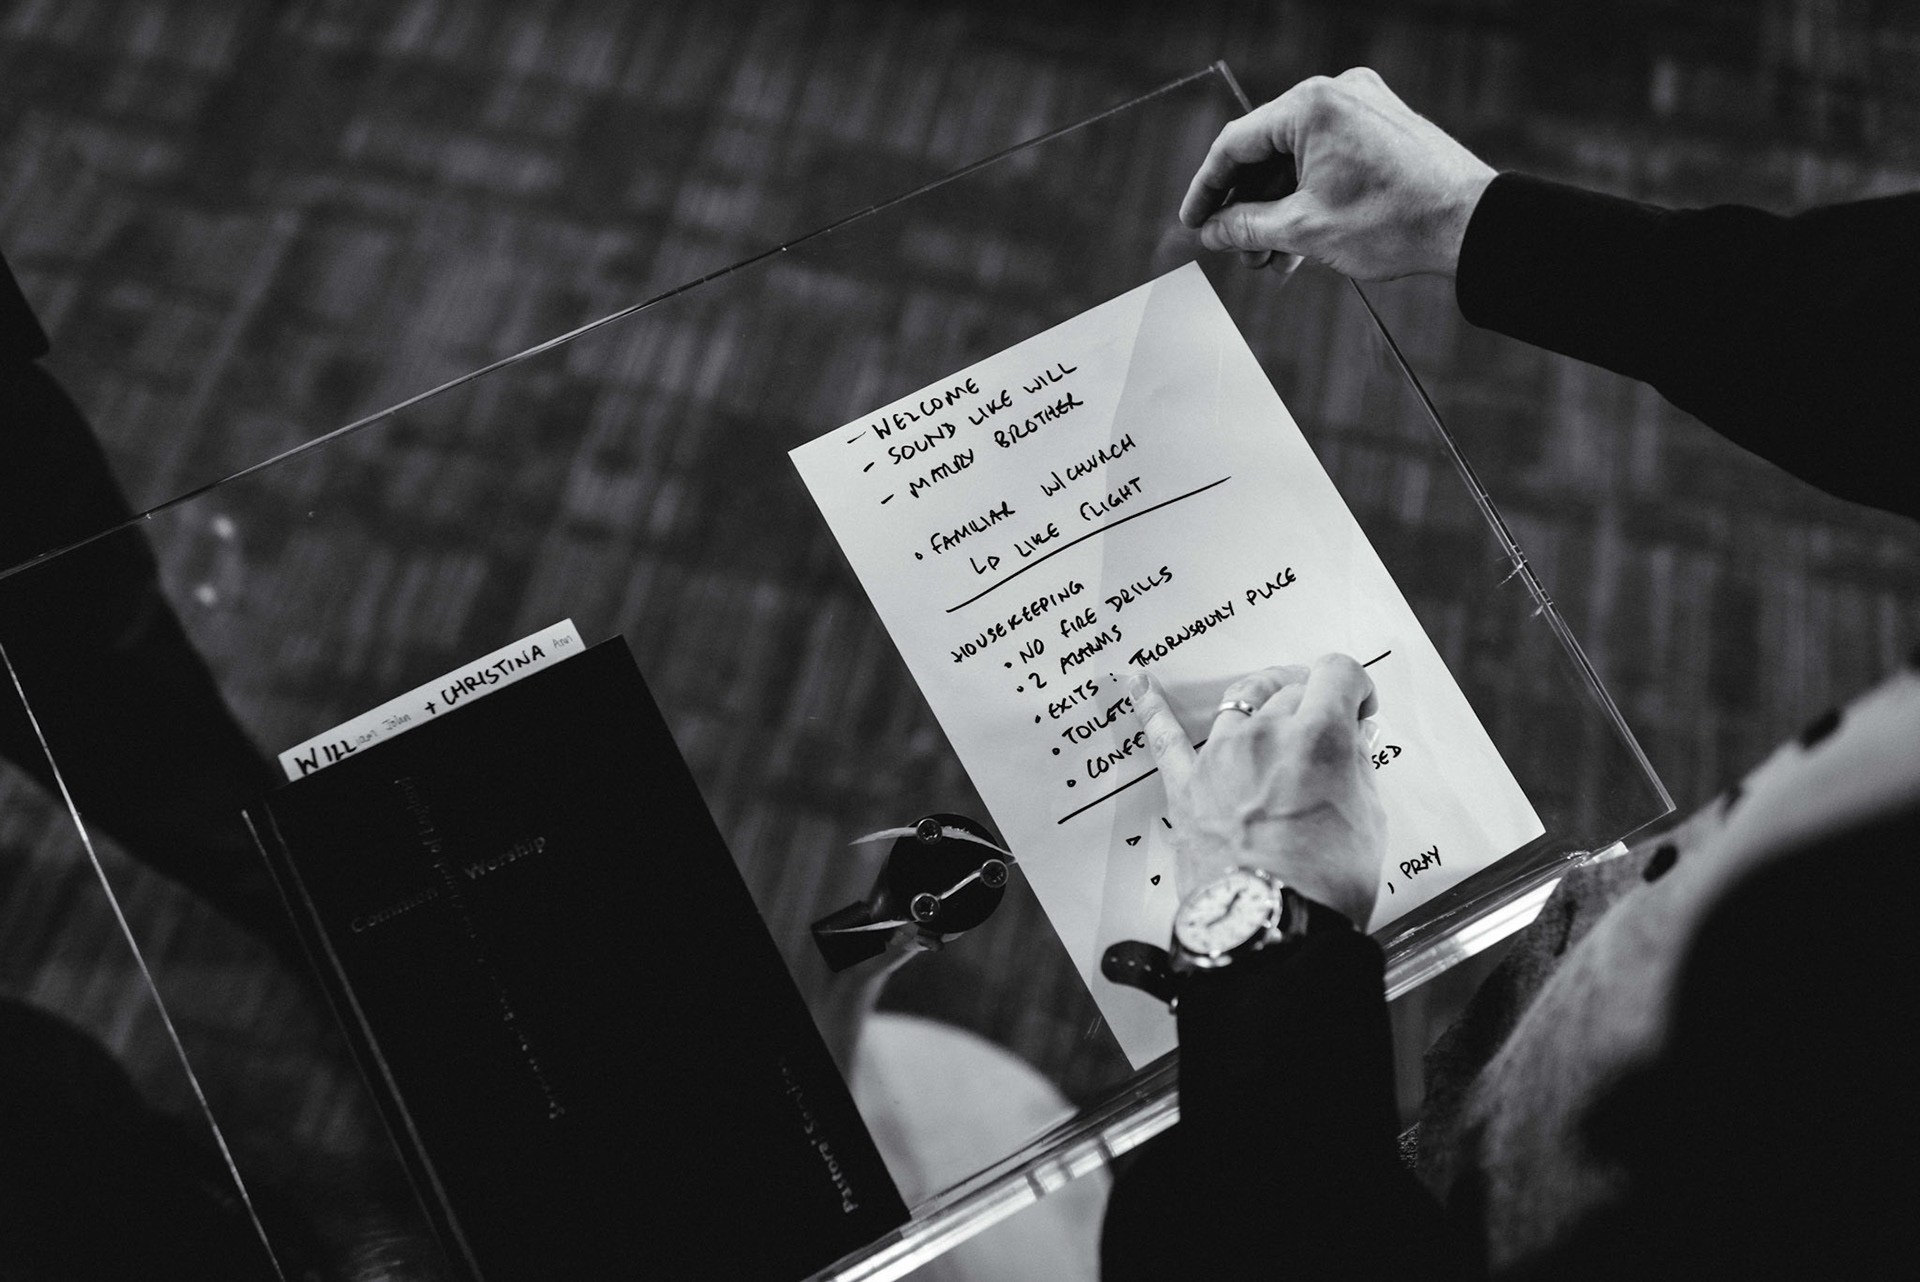 - WELCOME
- SOUND LIKE WILL
- MARRY BROTHER
• FAMILIAR W/CHURCH
LIKE FLIGHT
HOUSEKEEPING
• NO FIRE DRILLS
• 2 ALARMS
• EXITS : THORNSBURY PLACE
• TOILETS
• CONFE
SED
, PRAY
WILLiam John + CHRISTINA Ann
Common Worship
Pastoral Services